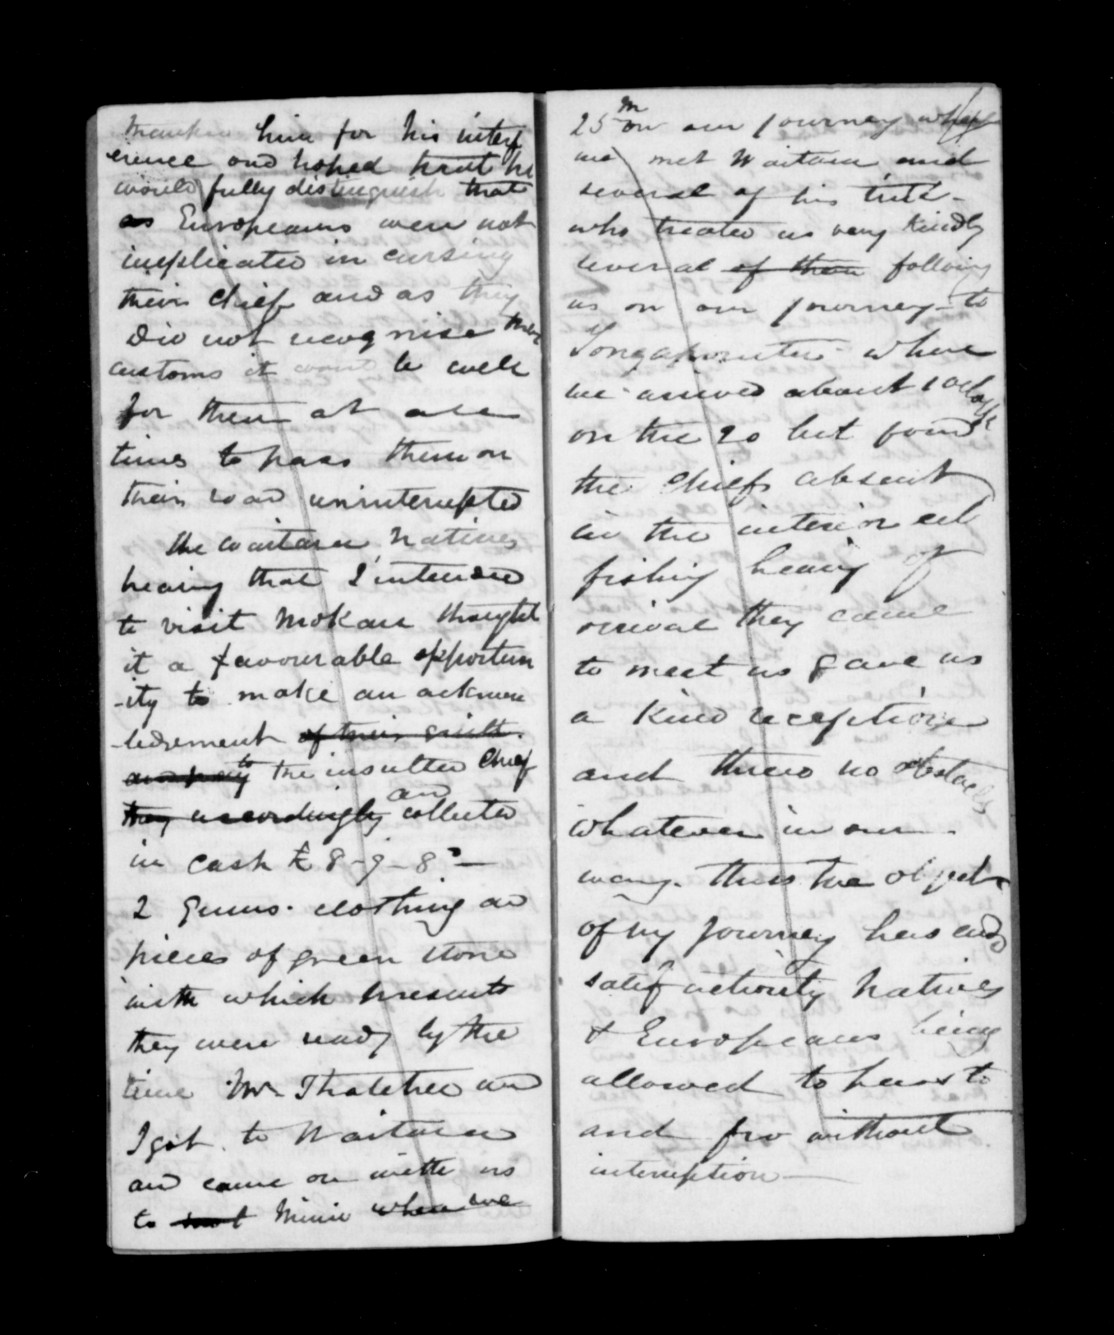 him for his interf
erence and hoped that he
would fully distinguish that
as Europeans were not
implicated in cursing
their chief and as they
did not recognise their
customs it would be well
for them at all
times to pass them on
their road uninterrupted
the Waitara Natives
hearing that I intended
to visit Mokau thought
it a favourable opportun
-ity to make an acknow
ledgement of their guilt.
to the insulted Chief
they accordingly and collected
in cash £ 8-9-8
2 Guns. clothing and
pieces of green stone
with which presents
they were ready by the
time Mr Thatcher and
I got to Waitara
and came on with us
to Mimi when we
25 m on our journey when
we met Waitara and
several of his tribe
who treated us very kindly
several of them following
us on our journey to
where
we arrived about 1 oclock
on the 20 but found
the Chiefs absent
in the interior eel
fishing hearing of
arrival they came
to meet us gave us
a kind reception
and threw no obstacles
whatever in our
way. thus the object
of my journey has ended
satisfactorily Natives
& Europeans being
allowed to pass to
and fro without
interruption